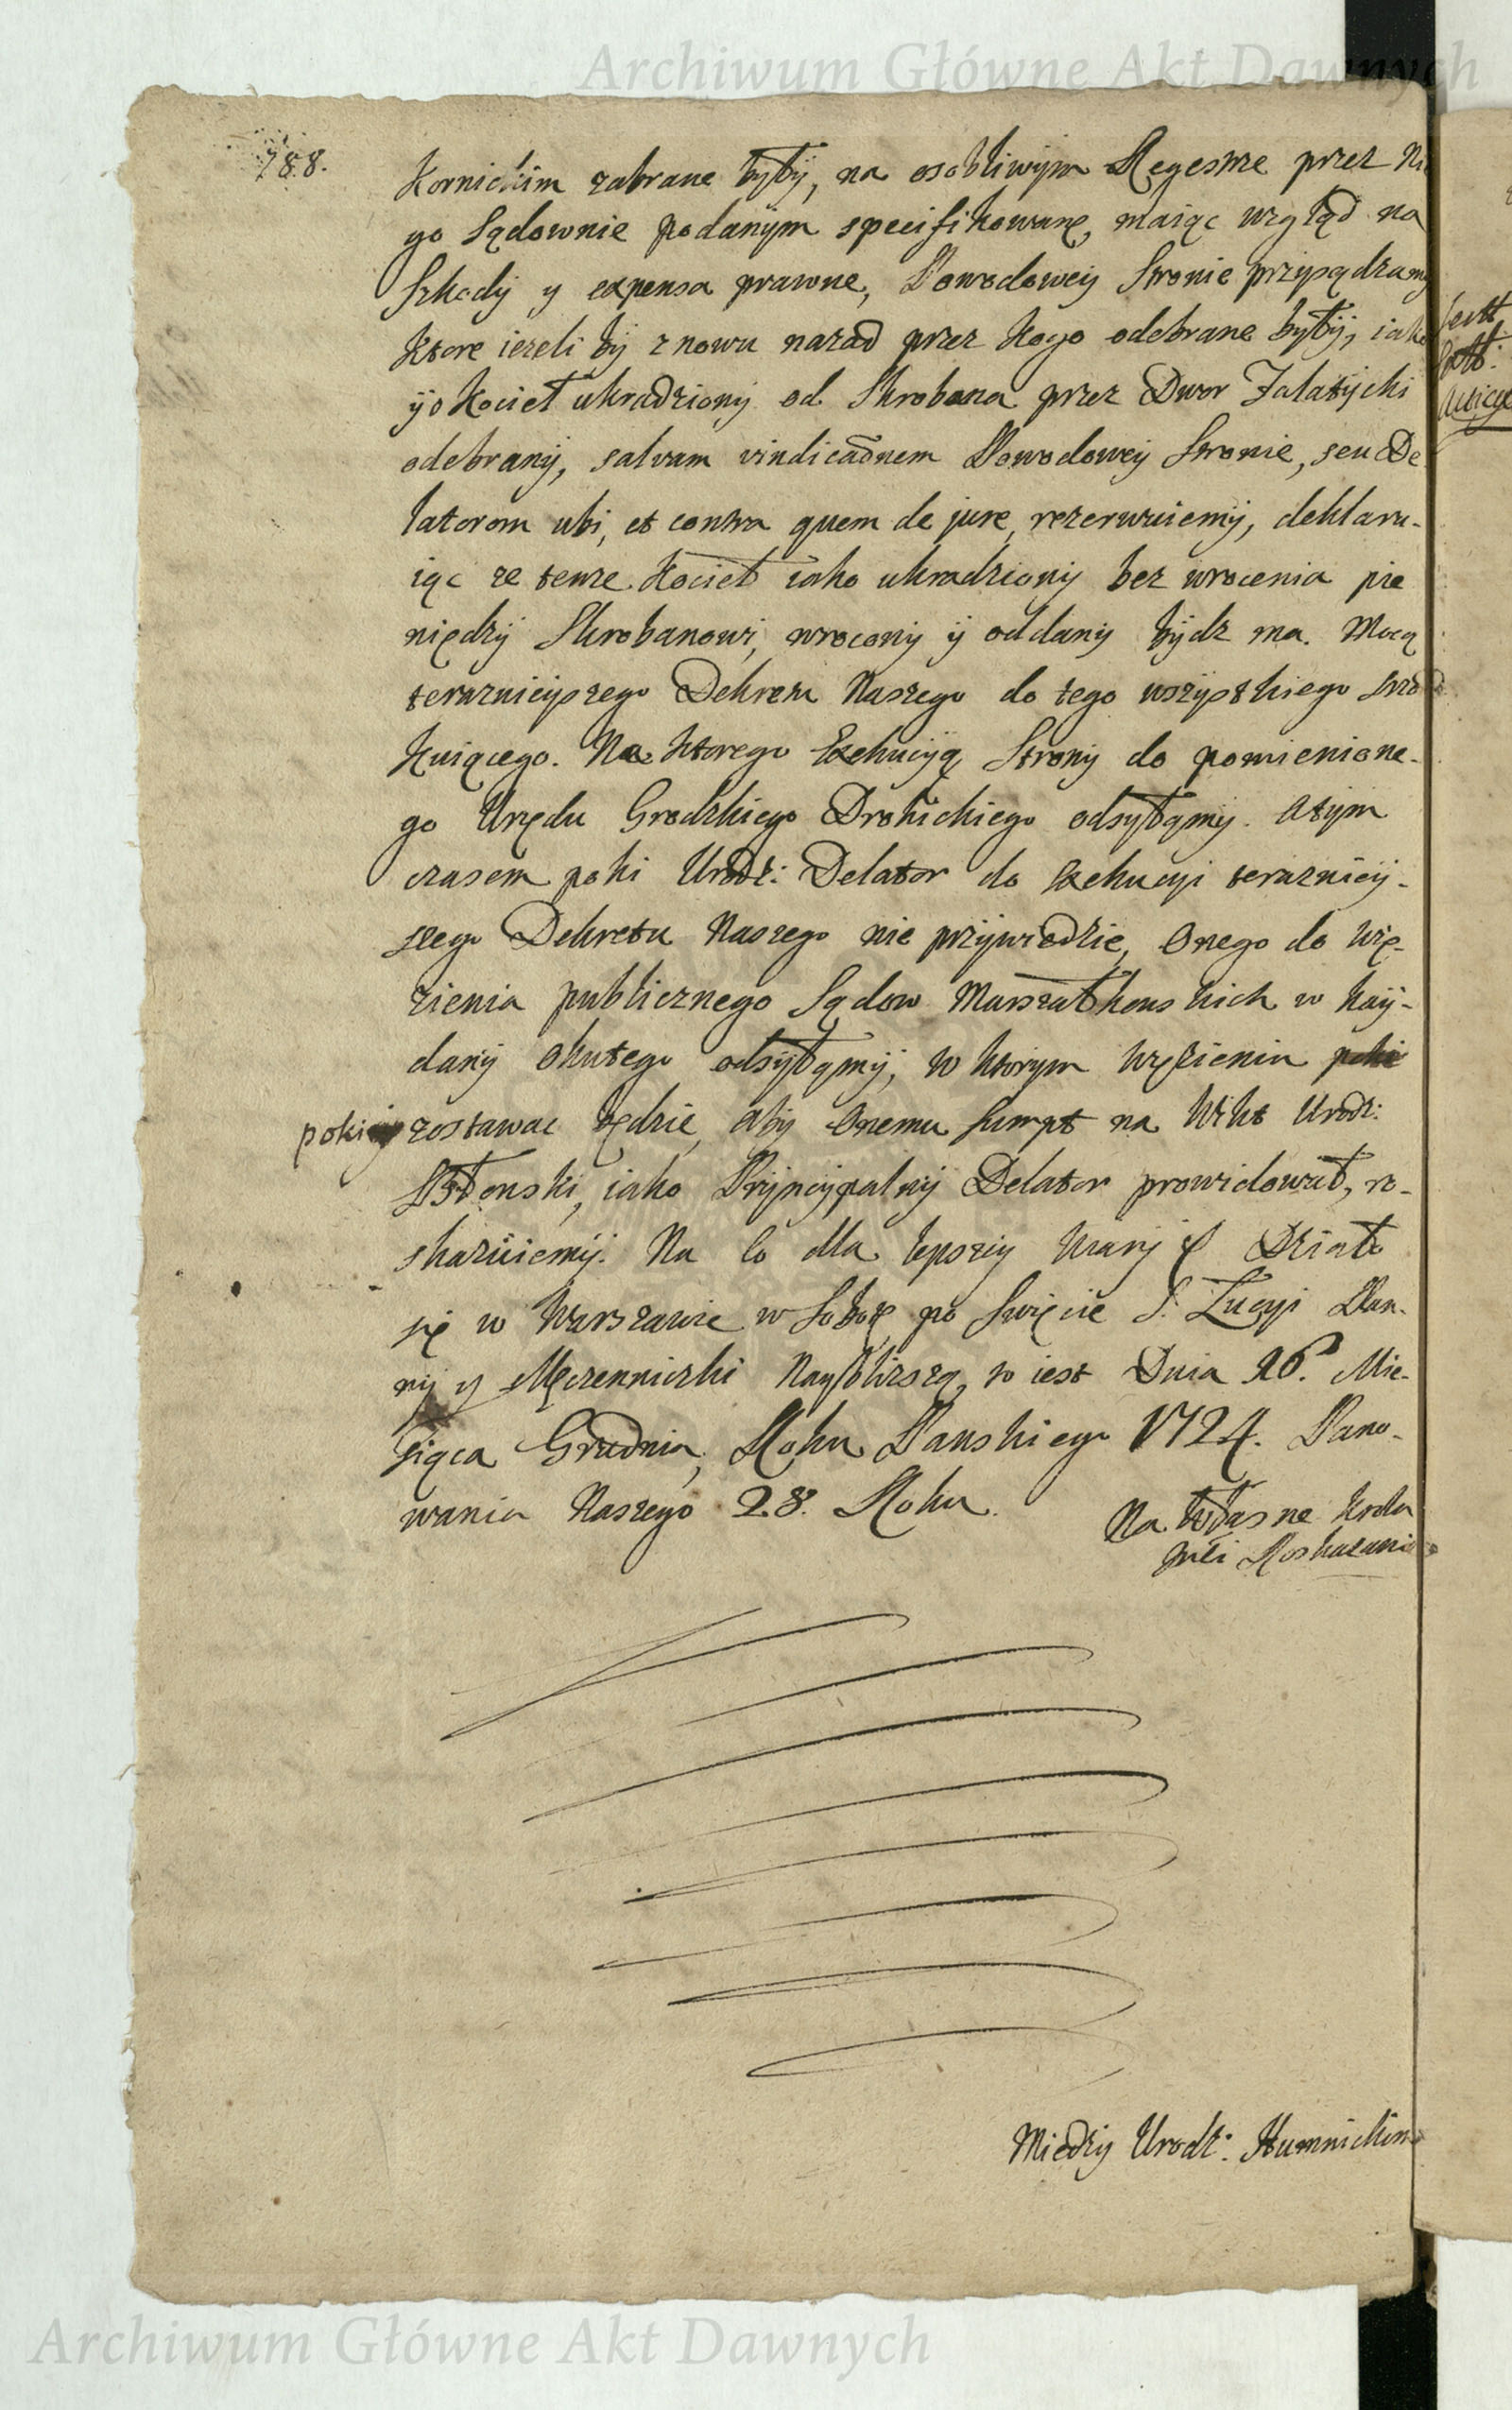 Archiwum Główne Akt Dawnych
788.
Kornickim zabrane były, na osobliwym Regestrze przez Nie
go Sądownie podanym specifikowane, maiąc wzgląd na
Szkody y expensa prawne, Powodowey Stronie przysądzamy
Ktore ieżeli by znowu nazad przez kogo odebrane były, iako
y o Kocieł ukradziony od Skrobana przez Dwor Zalatycki
odebrany, salvam vindicaōnem Powodowey Stronie, seu De
latorom ubi, et contra quem de jure, rezerwuiemy, deklaru-
iąc ze tenze Kocieł iako ukradziony bez wrocenia pie
niędzy Skrobanowi, wrocony y oddany bydz ma. Mocą
teraznieyszego Dekretu Naszego do tego wszystkiego
kuiącego. Na ktorego Exekucyą Strony do pomienione-
go Urzędu Grodzkiego Drohickiego odsyłamy. A tym
czasem poki Urodz: Delator do Exekucyi terazniey-
szego Dekretu Naszego nie przywiedzie, Onego do Wię-
zienia publicznego Sądow Marszałkowskich w kay-
dany okutego odsyłamy, w ktorym więzieniu poki
poki zostawac będzie, aby Onemu sumpt na Wikt Urodz:
iako Pryncypalny Delator prowidował, ro-
skazuiemy. Na Co dla lepszey Wiary & Działo
się w Warszawie w Sobotę po Swięcie S. Lucyi Pan-
ny y Męczenniczki Nayblizszą, to iest Dnia 16. Mie-
siąca Grudnia, Roku Panskiego 1724. Pano-
wania Naszego 28. Roku.
Na Własne Krola
Jmći Roskazanie
Miedzy Urodz: Humnickim
Archiwum Główne Akt Dawnych